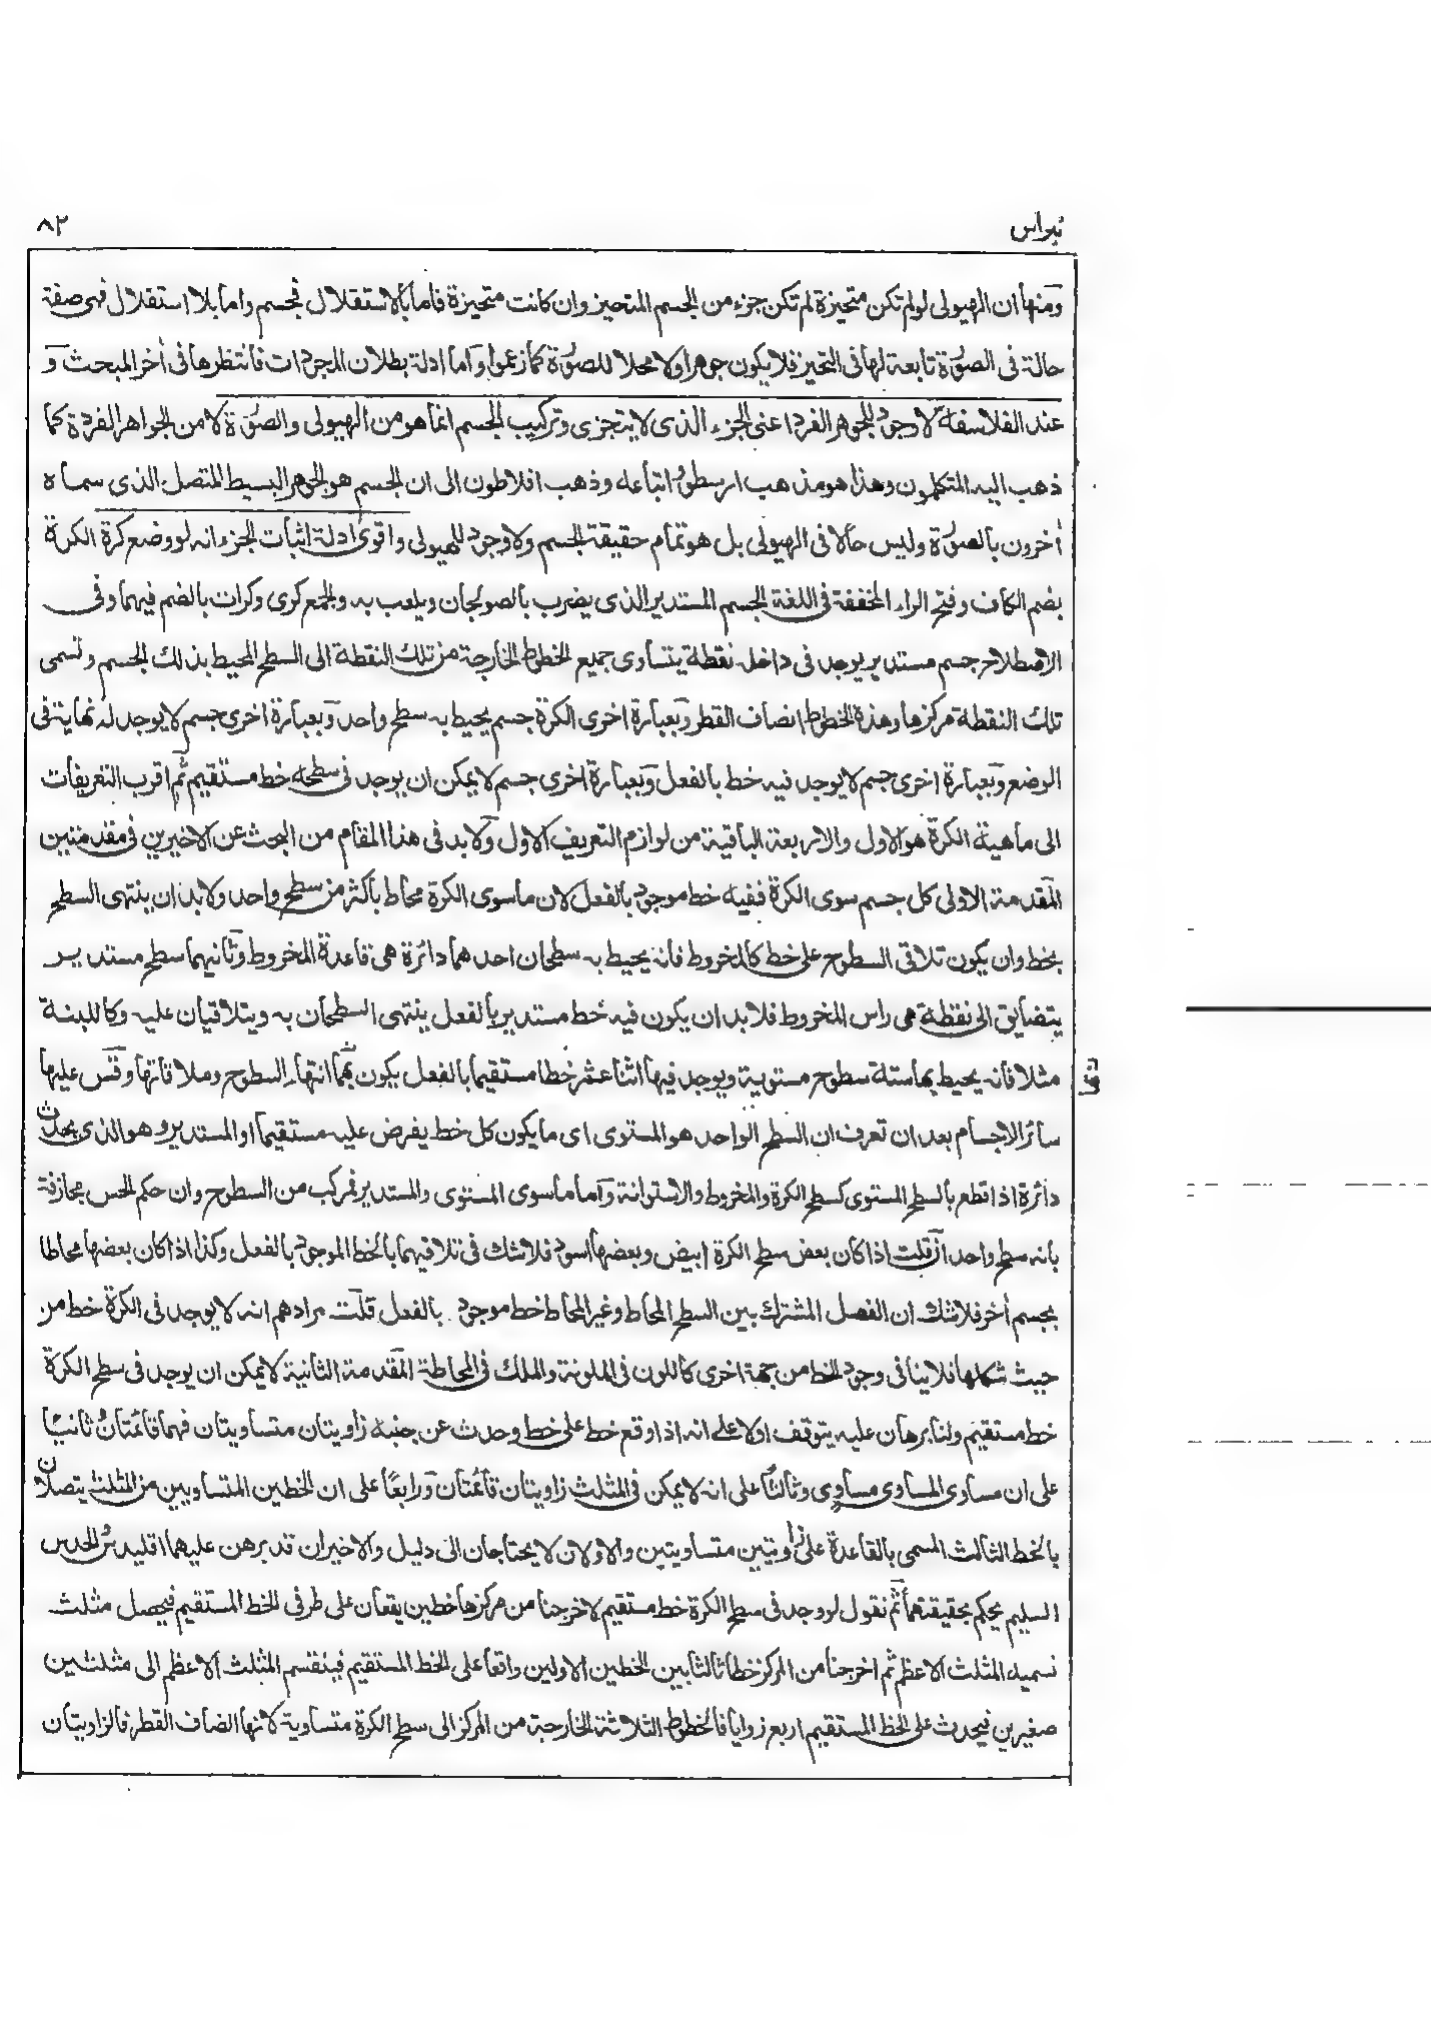 نبراس
٨٢
ومنها ان الهيولى لو لم تكن متحيزة لم تكن جزء من الجسم المتحيز وان كانت متحيزة فاما بالاستقلال فجسم واما بلا استقلال فهى صفة
حالة فى الصورة تابعة لها فى التحيز فلا يكون جوهرا ولا محلا للصورة كما زعموا واما ادلة بطلان المجردات فانتظرها فى أخر المبحث و
عند الفلاسفة لا وجود للجوهر الفرد اعنى الجزء الذى لا يتجزى وتركيب الجسم انما هو من الهيولى والصورة لا من الجواهر الفردة كما
ذهب اليه المتكلمون وهذا هو مذهب ارسطو واتباعه وذهب افلاطون الى ان الجسم هو الجوهر البسيط المتصل الذى سماه
أخرون بالصورة وليس حالا فى الهيولى بل هو تمام حقيقة الجسم ولا وجود للهيولى واقوى ادلة اثبات الجزء انه لو وضع كرة الكرة
بضم الكاف وفتح الراء المخففة فى اللغة الجسم المستدير الذى يضرب بالصولجان ويلعب به والجمع كرى وكرات بالضم فيهما وفى
الاصطلاح جسم مستدير يوجد فى داخله نقطة يتساوى جميع الخطوط الخارجة من تلك النقطة الى السطح المحيط بذلك الجسم وتسمى
تلك النقطة مركزها وهذة الخطوط انصاف القطر وبعبارة اخرى الكرة جسم يحيط به سطح واحد وبعبارة اخرى جسم لا يوجد له نهاية فى
الوضع وبعبارة اخرى جسم لا يوجد فيه خط بالفعل وبعبارة اخرى جسم لا يمكن ان يوجد فى سطحه خط مستقيم ثم اقرب التعريفات
الى ماهية الكرة هو الاول والاربعة الباقية من لوازم التعريف الاول ولا بد فى هذا المقام من البحث عن الاخيرين فى مقدمتين
المقدمة الاولى كل جسم سوى الكرة ففيه خط موجود بالفعل لان ما سوى الكرة محاط باكثر من سطح واحد ولا بد ان ينتهى السطح
بخط وان يكون تلاقى السطوح على خط كالمخروط فانه يحيط به سطحان احدهما دائرة هى قاعدة المخروط وثانيهما سطح مستدير
يتضايق الى نقطة هى راس المخروط فلا بد ان يكون فيه خط مستدير بالفعل ينتهى السطحان به ويتلاقيان عليه وكاللبنة
مثلا فانه يحيط بها ستة سطوح مستوية ويوجد فيها اثنا عشر خطا مستقيما بالفعل يكون بها انتهاء السطوح وملاقاتها وقس عليها
سائر الاجسام بعد ان تعرف ان السطح الواحد هو المستوى اى ما يكون كل خط يفرض عليه مستقيما او المستدير وهو الذى يحدث
دائرة اذا قطع بالسطح المستوى كسطح الكرة والمخروط والاسترانة واما ما سوى المستوى والمستدير فمركب من السطوح وان حكم الحس مجازفة
بانه سطح واحد ان قلت اذا كان بعض سطح الكرة ابيض وبعضها اسود فلا شك فى تلاقيهما بالخط الموجود بالفعل وكذا اذا كان بعضها محاطا
بجسم أخر فلا شك ان الفصل المشترك بين السطح المحاط وغير المحاط خط موجود بالفعل قلت مرادهم انه لا يوجد فى الكرة خط من
حيث شكلها فلا ينافى وجود الخط من جهة اخرى كاللون فى الملونة والملك فى المحاطة المقدمة الثانية لا يمكن ان يوجد فى سطح الكرة
خط مستقيم ولنا برهان عليه يتوقف اولا على انه اذا وقع خط على خط وحدث عن جنبه زاويتان متساويتان فهما قائمتان ثانيا
على ان مساوى المساوى مساوى وثالثا على انه لا يمكن فى المثلث زاويتان قائمتان ورابعا على ان الخطين المتساويين من المثلث يتصلان
بالخط الثالث المسمى بالقاعدة على زاويتين متساويتين والاولان لا يحتاجان الى دليل والاخيران قد برهن عليهما اقليدس والحدس
السليم يحكم بحقيقتهما ثم نقول لو وجد فى سطح الكرة خط مستقيم لاخرجنا من مركزها خطين يقعان على طرفى الخط المستقيم فيحصل مثلث
نسميه المثلث الاعظم ثم اخرجنا من المركز خطا ثالثا بين الخطين الاولين واقعا على الخط المستقيم فينقسم المثلث الاعظم الى مثلثين
صغيرين فيحدث على الخط المستقيم اربع زوايا فالخطوط الثلاثة الخارجة من المركز الى سطح الكرة متساوية لانها انصاف القطر فالزاويتان